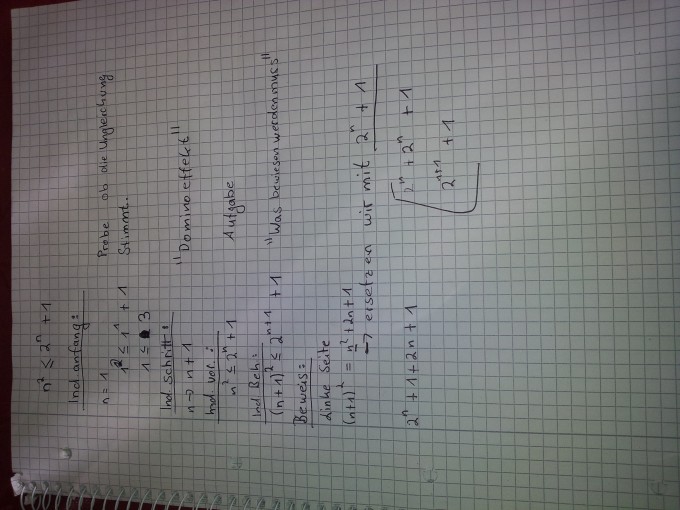 n² ≤ 2ⁿ + 1
Ind.anfang: Probe ob die Ungleichung
n = 1 Stimmt.
1² ≤ 1¹ + 1
1 ≤ 3
Ind.schritt: "Dominoeffekt"
n → n + 1
Ind. vor.: Aufgabe
n² ≤ 2ⁿ + 1
Ind. Beh.:
(n+1)² ≤ 2ⁿ⁺¹ + 1 "Was bewiesen werden muss"
Beweis:
Linke Seite
(n+1)² = n² + 2n + 1
→ ersetzen wir mit 2ⁿ + 1
2ⁿ + 1 + 2n + 1
2ⁿ + 2ⁿ + 1
2ⁿ⁺¹ + 1